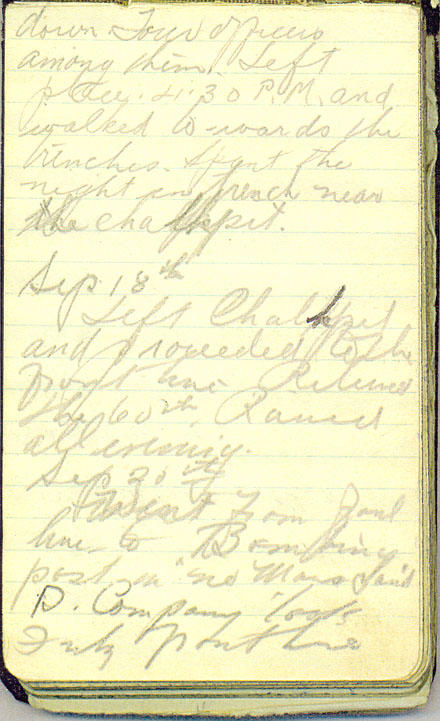 down Four officers
among them. Left
place. 4.30 P.M. and
walked towards the
trenches. Spent the
night in trench near
the chalkpit.
Sep 18th
Left Chalkpit
and proceeded to the
front line Relieved
the 60th. Rained
all evening.
Sep 30th
Went from front
line to Bombing
post in "no Mans Land
D. Company
front line